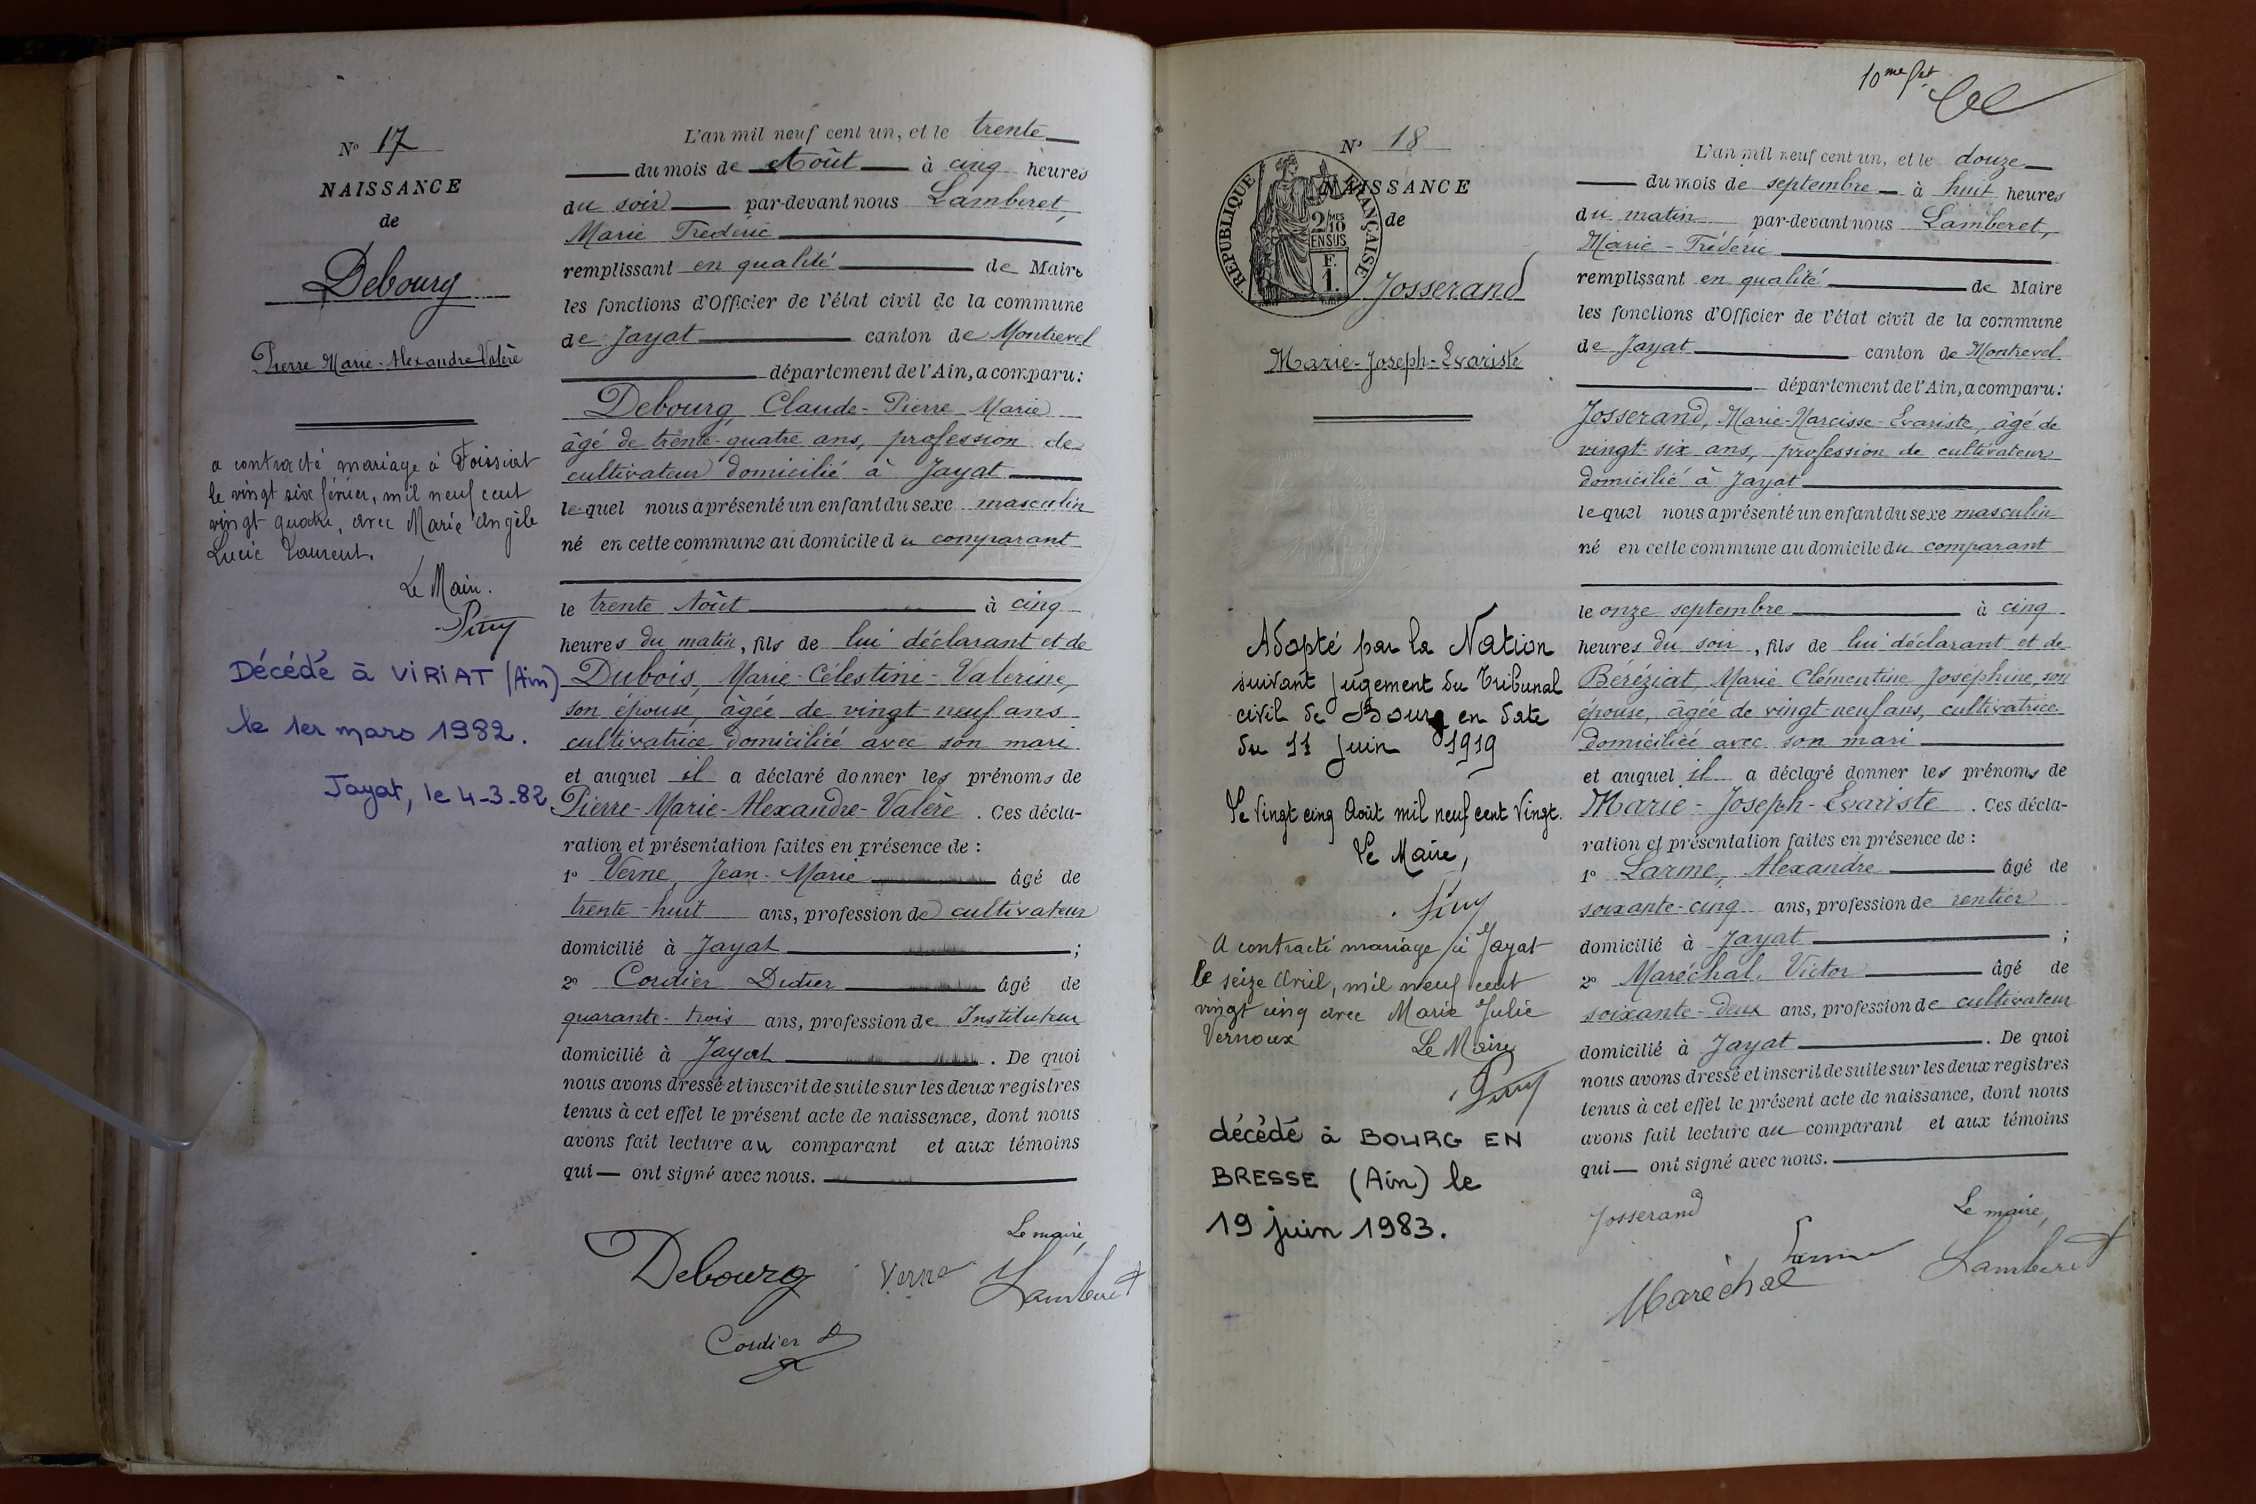 N° 17
NAISSANCE
de
Debourg
Pierre Marie-Alexandre-Valère
a contracté mariage à Foissiat
le vingt six février, mil neuf cent
vingt quatre, avec Marie Angèle
Lucie Laurent.
Le Maire.
Décédé à VIRIAT (Ain)
le 1er mars 1982.
Jayat, le 4-3-82
L'an mil neuf cent un, et le trente
du mois de Août à cinq heures
du soir par-devant nous Lamberet,
Marie Frédéric
remplissant en qualité de Maire
les fonctions d'Officier de l'état civil de la commune
de Jayat canton de Montrevel
département de l'Ain, a comparu :
Debourg, Claude-Pierre Marie
âgé de trente-quatre ans, profession de
cultivateur domicilié à Jayat
lequel nous a présenté un enfant du sexe masculin
né en cette commune au domicile du comparant
le trente Août à cinq
heures du matin, fils de lui déclarant et de
Dubois, Marie-Célestine-Valérine,
son épouse, âgée de vingt-neuf ans
cultivatrice domiciliée avec son mari.
et auquel il a déclaré donner les prénoms de
Pierre-Marie-Alexandre-Valère. Ces décla-
ration et présentation faites en présence de :
1° Verne, Jean-Marie âgé de
trente-huit ans, profession de cultivateur
domicilié à Jayat ;
2° Cordier Didier âgé de
quarante-trois ans, profession de Instituteur
domicilié à Jayat. De quoi
nous avons dressé et inscrit de suite sur les deux registres
tenus à cet effet le présent acte de naissance, dont nous
avons fait lecture au comparant et aux témoins
qui — ont signé avec nous.
Le maire,
Debourg Verne Lamberet
Cordier D
10me
N° 18
NAISSANCE
de
REPUBLIQUE FRANÇAISE
2/10 MES
EN SUS
F.
1.
Josserand
Marie-Joseph-Evariste
Adopté par la Nation
suivant jugement du Tribunal
civil de Bourg en date
du 11 juin 1919
Le vingt cinq Août mil neuf cent vingt.
Le Maire,
A contracté mariage à Jayat
le seize Avril, mil neuf cent
vingt cinq avec Marie Julie
Vernoux
Le Maire
décédé à BOURG EN
BRESSE (Ain) le
19 juin 1983.
L'an mil neuf cent un, et le douze
du mois de septembre à huit heures
du matin par-devant nous Lamberet,
Marie-Frédéric
remplissant en qualité de Maire
les fonctions d'Officier de l'état civil de la commune
de Jayat canton de Montrevel
département de l'Ain, a comparu :
Josserand, Marie-Narcisse-Evariste, âgé de
vingt-six ans, profession de cultivateur
domicilié à Jayat
lequel nous a présenté un enfant du sexe masculin
né en cette commune au domicile du comparant
le onze septembre à cinq
heures du soir, fils de lui déclarant et de
Béréziat, Marie Clémentine Joséphine, son
épouse, âgée de vingt-neuf ans, cultivatrice
domiciliée avec son mari
et auquel il a déclaré donner les prénoms de
Marie-Joseph-Evariste. Ces décla-
ration et présentation faites en présence de :
1° Larme, Alexandre âgé de
soixante-cinq ans, profession de rentier
domicilié à Jayat ;
2° Maréchal, Victor âgé de
soixante-deux ans, profession de cultivateur
domicilié à Jayat. De quoi
nous avons dressé et inscrit de suite sur les deux registres
tenus à cet effet le présent acte de naissance, dont nous
avons fait lecture au comparant et aux témoins
qui — ont signé avec nous.
Josserand Le maire,
Larme Lamberet
Maréchal